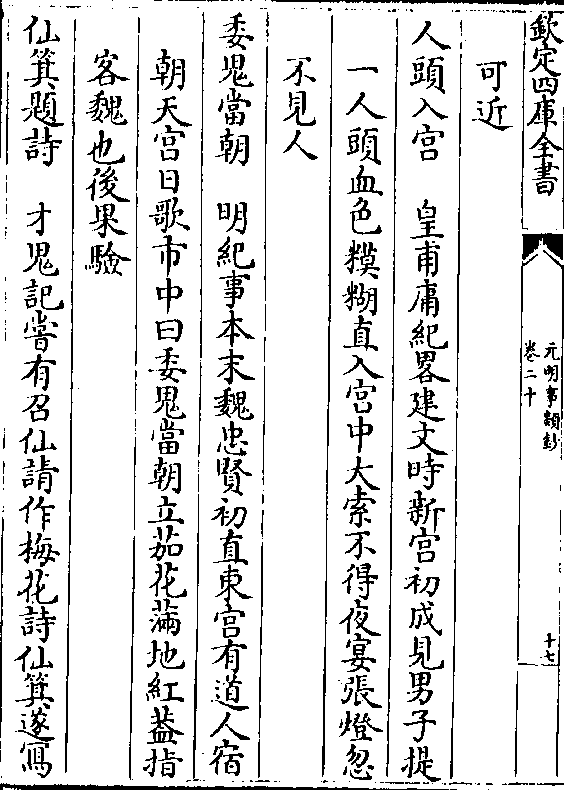 欽定四庫全書
元明事類鈔
卷二十
十七
可近
人頭入宮　皇甫庸紀畧建文時新宮初成見男子提
一人頭血色糢糊直入宮中大索不得夜宴張燈忽
不見人
委鬼當朝　明紀事本末魏忠賢初直東宮有道人宿
朝天宮日歌市中曰委鬼當朝立茄花滿地紅葢指
客魏也後果驗
仙箕題詩　才鬼記嘗有召仙請作梅花詩仙箕遂寫